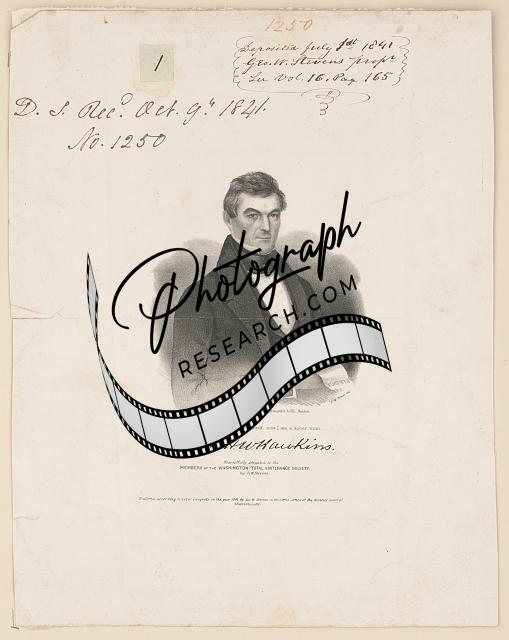 1250
Deposited July 1st 1841
Geo. W. Stevens propr
See Vol. 16. Pag. 165
1
D. S. Recd. Oct. 9th 1841.
No. 1250
Photograph
RESEARCH.COM
Lith. Boston.
now I am a sober man.
W Hawkins.
Respectfully dedicated to the
MEMBERS OF THE WASHINGTON TOTAL ABSTINENCE SOCIETY.
by
Entered according to act of congress in the year 1841 by Geo. W. Stevens in the clerks office of the district court of
Massachusetts.